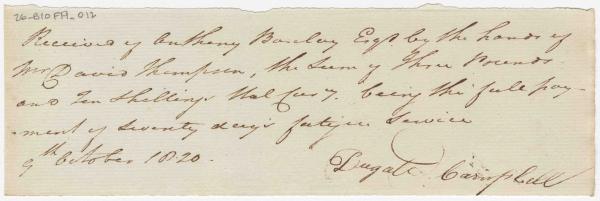 26-B10FA-012
Received of Anthony Barclay Esqr. by the hands of
Mr. David Thompson, the Sum of Three Pounds
and Ten Shillings Hal Curry. being the full pay-
-ment of Seventy days fatigue Service
9th October 1820.
Dugald Campbell